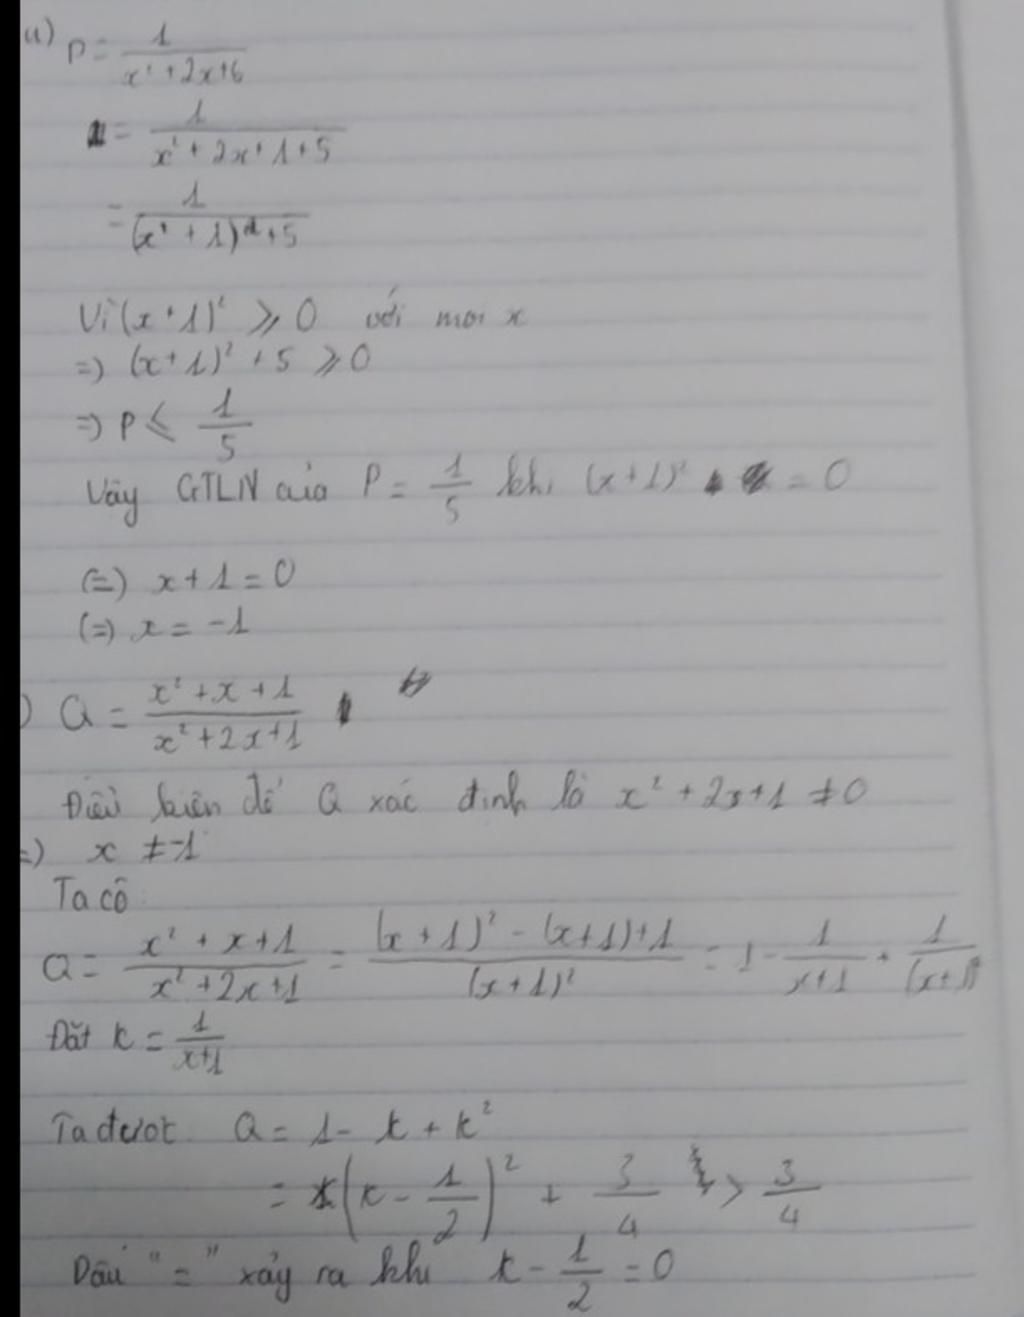 a) P = 1/(x² + 2x + 6)
= 1/(x² + 2x + 1 + 5)
= 1/((x² + 1)² + 5)
Vì (x + 1)² ⩾ 0 với mọi x
=> (x + 1)² + 5 ⩾ 0
=> P ⩽ 1/5
Vậy GTLN của P = 1/5 khi (x + 1)² = 0
(=) x + 1 = 0
(=) x = -1
) Q = (x² + x + 1)/(x² + 2x + 1)
Điều kiện để Q xác định là x² + 2x + 1 ≠ 0
=) x ≠ -1
Ta cô
Q = (x² + x + 1)/(x² + 2x + 1) = ((x + 1)² - (x + 1) + 1)/(x + 1)² = 1 - 1/(x + 1) + 1/(x + 1)²
Đặt t = 1/(x + 1)
Ta được Q = 1 - t + t²
= (t - 1/2)² + 3/4 > 3/4
Dấu "=" xảy ra khi t - 1/2 = 0